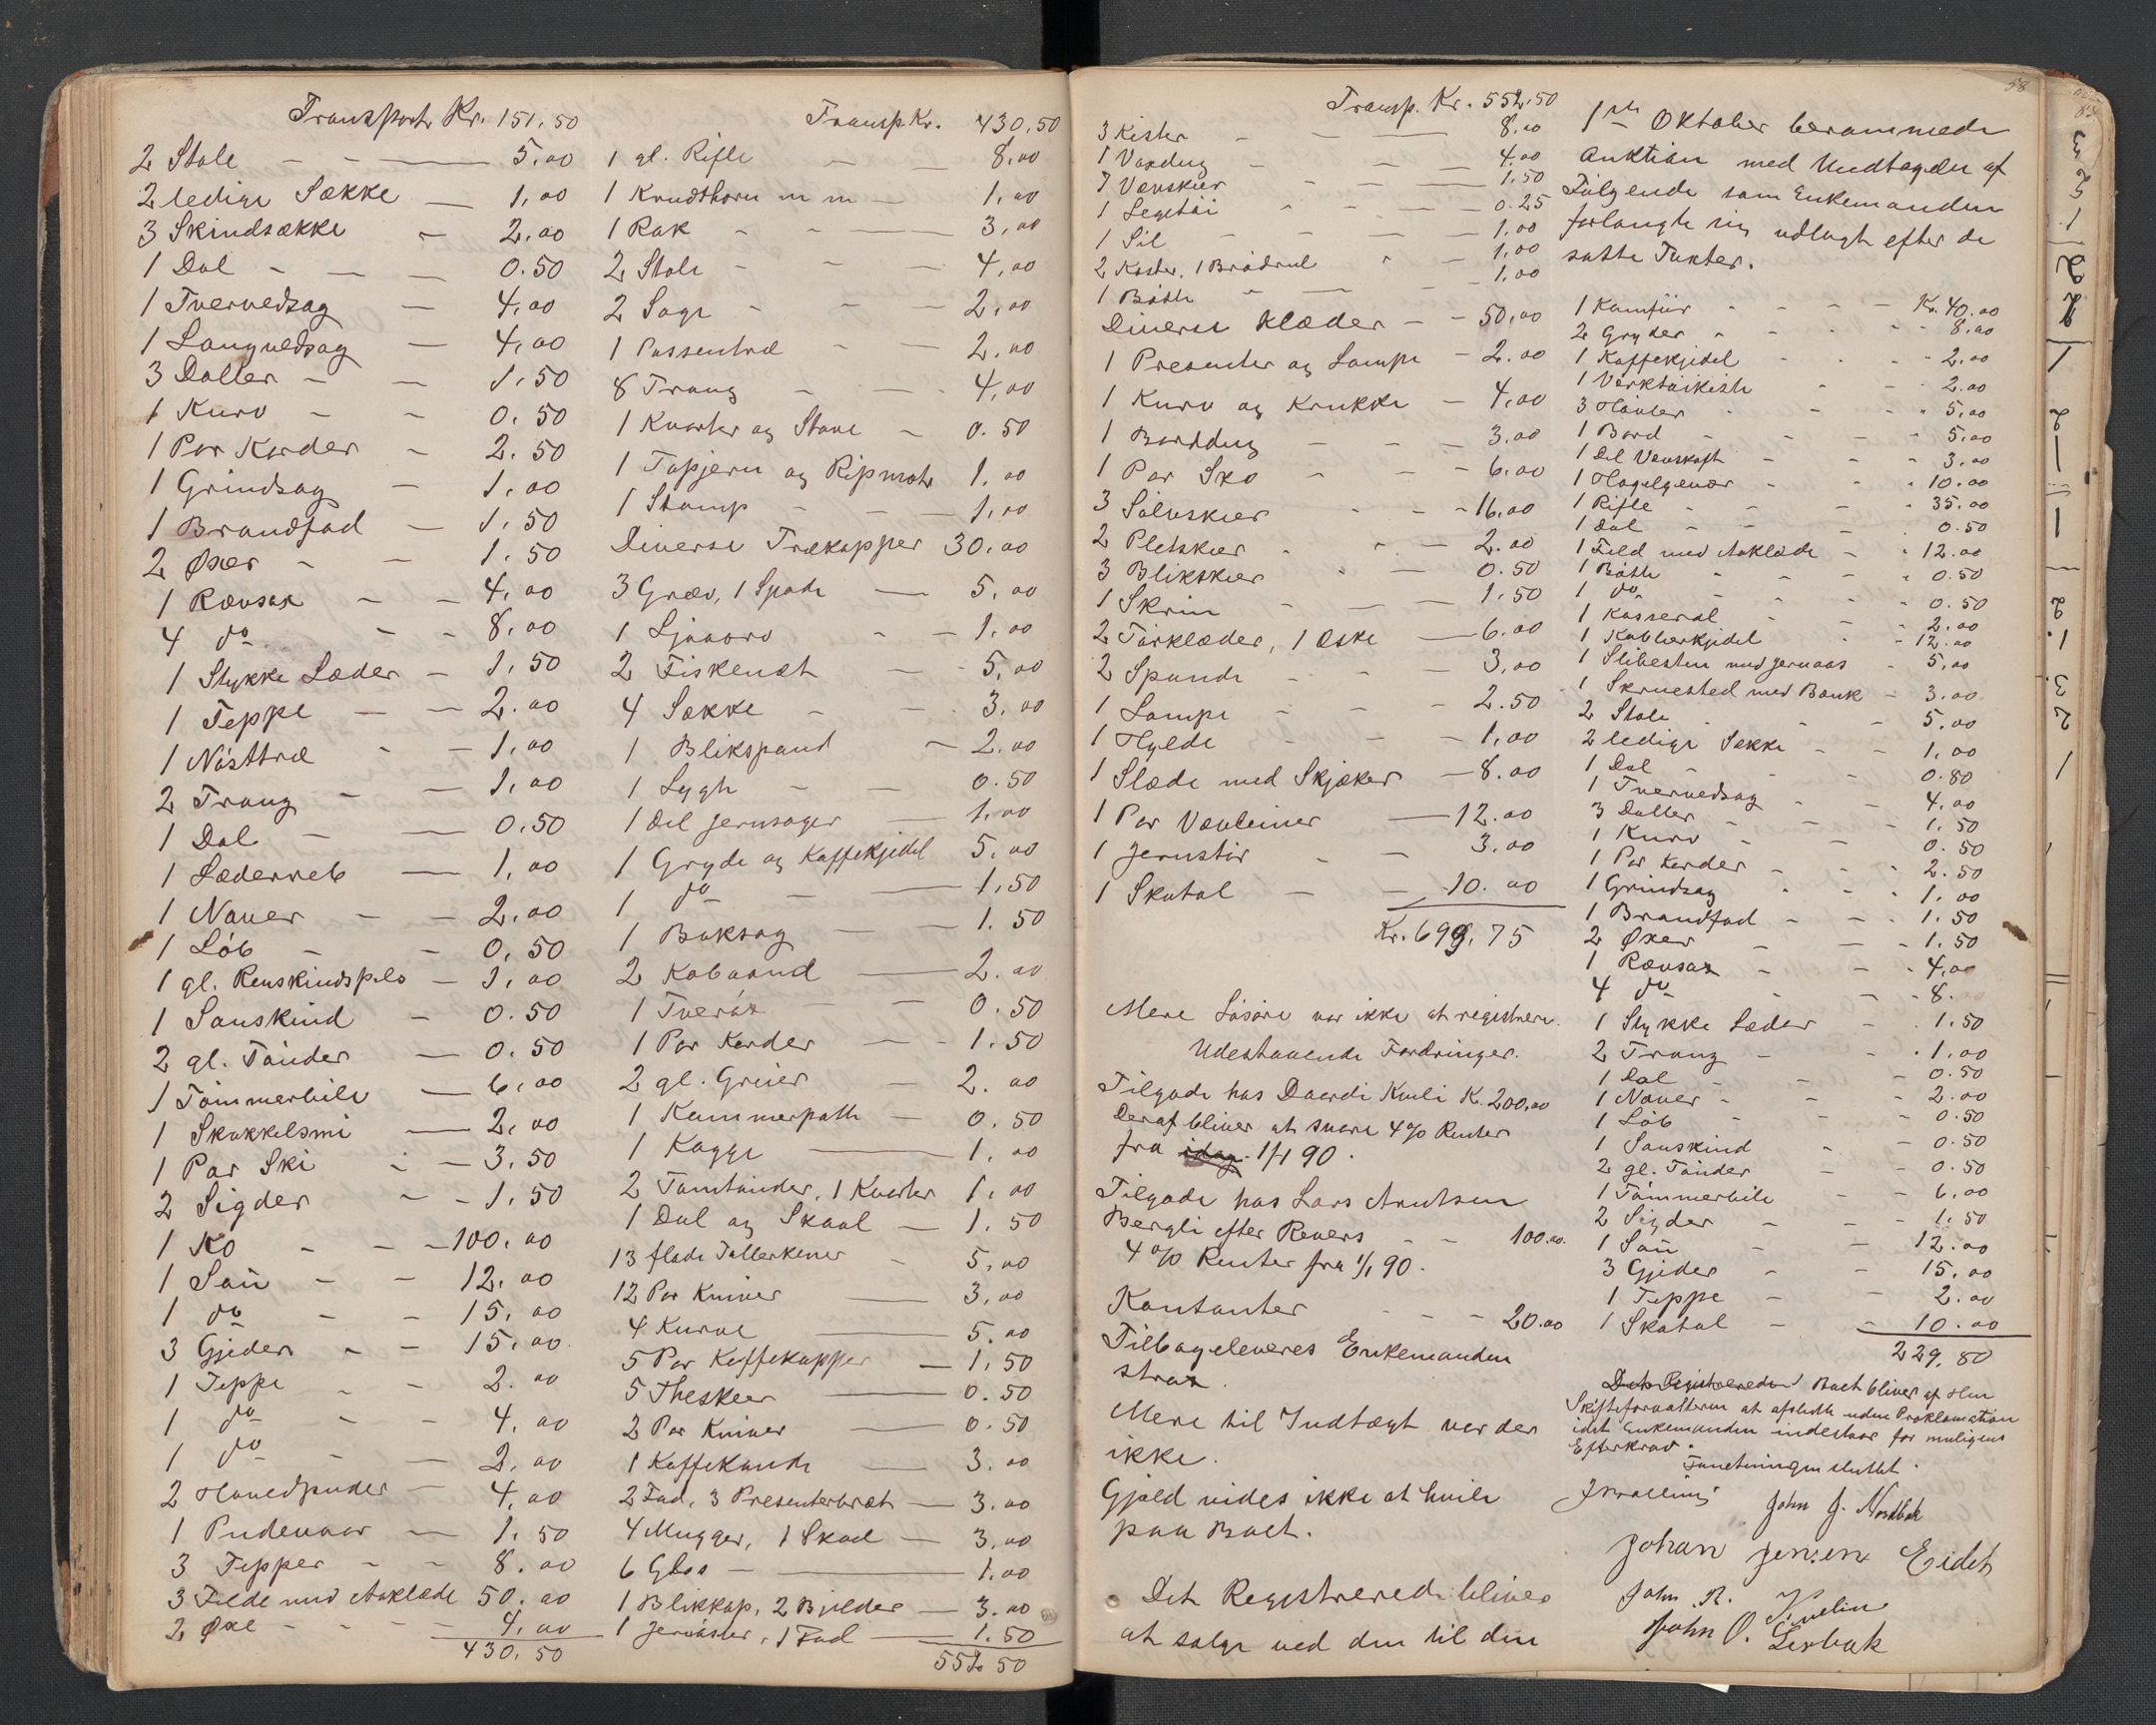 Transport Kr. 151.50
2 Stole - - 5.00
2 ledige Sække - 1.00
3 Skindsække - 2.00
1 Dal - - - 0.50
1 Tvervedsag - 4.00
1 Langvedsag - 4.00
3 Daller - - 1.50
1 Kurv - - 0.50
1 Par Karder - 2.50
1 Grindsag - 1.00
1 Brandfad - 1.50
2 Øxer - - 1.50
1 Rævsax - - 4.00
4 do - - 8.00
1 Stykke Læder - 1.50
1 Teppe - - 2.00
1 Nøsttræ - - 1.00
2 Traug - - 1.00
1 Dal - - 0.50
1 Læderreb - 1.00
1 Naver - - 2.00
1 Løb - - 0.50
1 gl. Renskindspels - 1.00
1 Sauskind - 0.50
2 gl. Tønder - 0.50
1 Tømmerbile - 6.00
1 Skakkelsmi - 2.00
1 Par Ski - - 3.50
2 Sigder - - 1.50
1 Ko - - - 100.00
1 Sau - - 12.00
1 do - - 15.00
3 Gjeder - - 15.00
1 Teppe - - 2.00
1 do - - 4.00
1 do - - 2.00
2 Hovedpuder - 4.00
1 Pudevaar - 1.50
3 Tepper - - 8.00
3 Felde med Aaklæde 50.00
2 Øxe - - - 4.00
430.50
Transp. Kr. 430.50
1 gl. Rifle - - 8.00
1 Krudthorn m m - 1.00
1 Rak - - - 3.00
2 Stole - - - 4.00
2 Sage - - - 2.00
1 Passentræ - - 2.00
8 Traug - - - 4.00
1 Kvarter og Stave - 0.50
1 Tapjern og Ripmot 1.00
1 Stamp - - - 1.00
Diverse Trækapper 30.00
3 Græv, 1 Spade - 5.00
1 Ljaaorv - - 1.00
2 Fiskenæt - - 5.00
4 Sække - - 3.00
1 Blikspand - 2.00
1 Lygte - - 0.50
1 Del Jernsager - 1.00
1 Gryde og Kaffekjedel 5.00
1 do - - 1.50
1 Baksag - - 1.50
2 Kobaand - 2.00
1 Tverøx - - 0.50
1 Par Karder - - 1.50
2 gl. Greier - 2.00
1 Kammerpotte - 0.50
1 Kagge - 1.00
2 Tomtønder, 1 Kvarter 1.00
1 Dal og Skaal - 1.50
13 flade Tallerkener - 5.00
12 Par Kniver - 3.00
4 Kurve - 5.00
5 Par Kaffekopper - 1.50
5 Theskeer - 0.50
2 Par Kniver - 0.50
1 Kaffekande - 3.00
2 Fad, 3 Presenterbræt - 3.00
4 Mugger, 1 Skaal - 3.00
6 Glas - - 1.00
1 Blikkop, 2 Bjelder - 3.00
1 Jernøster, 1 Fad - 1.50
552.50
58
Transp. Kr. 552.50
3 Kister - - - 8.00
1 Voxdug - - - 4.00
7 Vævskeer - - - 1.50
1 Legetøi - - - 0.25
1 Sil - - - 1.00
2 Koster, 1 Brødrul - - 1.00
1 Bøtte - - - 1.00
Diverse Klæder - - 50.00
1 Presenter og Lampe - 2.00
1 Kurv og Krukke - 4.00
1 Borddug - - - 3.00
1 Par Sko - - - 6.00
3 Sølvskeer - - 16.00
2 Pletskeer - - - 2.00
3 Blikskeer - - 0.50
1 Skrin - - - 1.50
2 Tørklæder, 1 Æske - 6.00
2 Spande - - - 3.00
1 Lampe - - - 2.50
1 Hylde - - - 1.00
1 Slæde med Skjæker - 8.00
1 Par Vævleiner - 12.00
1 Jernstør - - 3.00
1 Skatol - - 10.00
Kr. 699.75
Mere Løsøre var ikke at registrere.
Udestaaende Fordringer.
Tilgode hos Daardi Kuuli K. 200.00
Deraf bliver at svare 4 % Renter
fra idag 1/1 90.
Tilgode hos Lars Arntsen
Bergli efter Revers - - 100.00.
4 % Renter fra 1/1 90.
Kontanter - - - 20.00
Tilbageleveres Enkemanden
strax.
Mere til Indtægt var der
ikke.
Gjæld vides ikke at hvile
paa Boet.
Det Registrerede bliver
at sælge ved den til den
1ste Oktober berammede
Auktion med Undtagelse af
Følgende som Enkemanden
forlangte sig udlagt efter de
satte Taxter.
1 Kamfür - - - - Kr. 40.00
2 Gryder - - - - 8.00
1 Kaffekjedel - - - 2.00
1 Værktøikiste - - 2.00
3 Høvler - - - 5.00
1 Bord - - - - 5.00
1 Del Vævskaft - - - 3.00
1 Haglgevær - - - 10.00
1 Rifle - - - 35.00
1 Dal - - - 0.50
1 Feld med Aaklæde - - 12.00
1 Bøtte - - - - 0.50
1 do - - - - 0.50
1 Kasserol - - - 2.00
1 Kobberkjedel - - 12.00
1 Slibesten med Jernaas - 5.00
1 Skruested med Bænk - 3.00
2 Stole - - - 5.00
2 ledige Sække - - 1.00
1 Dal - - - 0.80
1 Tvervedsag - - 4.00
3 Daller - - - 1.50
1 Kurv - - - 0.50
1 Par Karder - - - 2.50
1 Grindsag - - - 1.00
1 Brandfad - - - 1.50
2 Øxer - - - 1.50
1 Rævsax - - - 4.00
4 do - - - 8.
1 Stykke Læder - - 1.50
2 Traug - - - 1.00
1 Dal - - - 0.50
1 Naver - - - 2.00
1 Løb - - - 0.50
1 Sauskind - - 0.50
2 gl. Tønder - - 0.50
1 Tømmerbile - - 6.00
2 Sigder - - - 1.50
1 Sau - - 12.00
3 Gjeder - - 15.00
1 Teppe - - 2.00
1 Skatol - - 10.00
229.80
Det Registrerede Boet bliver af Hr.
Skifteforvalteren at afslutte uden Proklamation
idet Enkemanden indestaar for muligens
Efterkrav.
Forretningen sluttet.
John J. Nordbak
Johan Jensen Eidet
John R.
John O. Lerbak